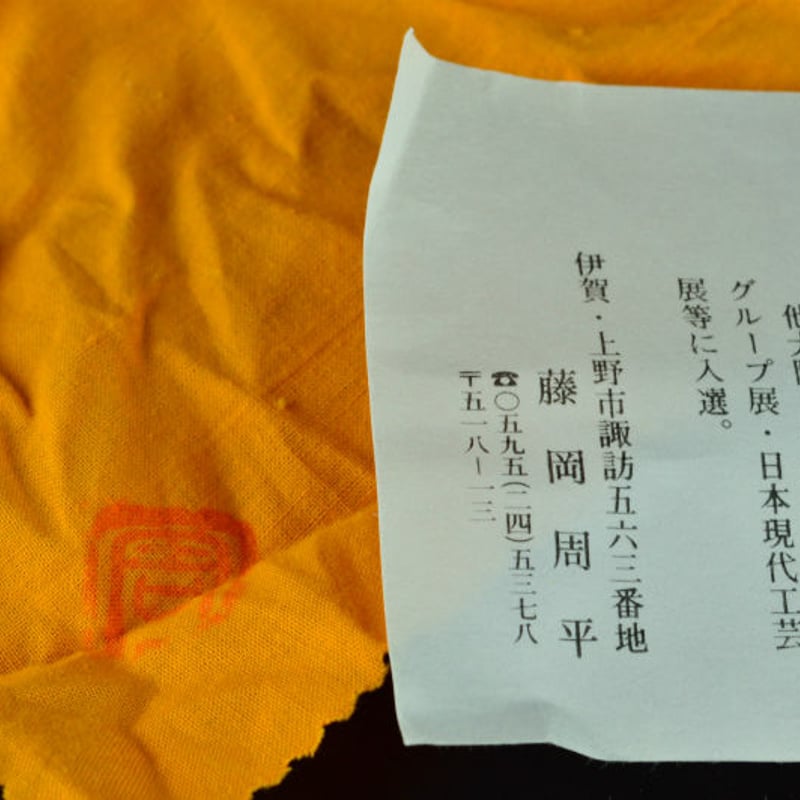 グループ展・日本現代工芸
展等に入選。
伊賀・上野市諏訪五六三番地
藤岡周平
☎〇五九五(二四)五三七八
〒五一八ー一三